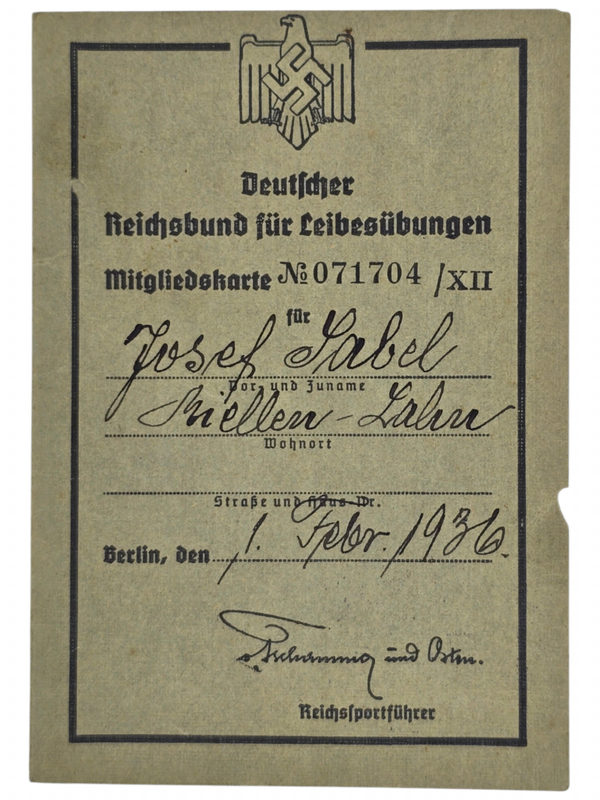 Deutscher
Reichsbund für Leibesübungen
Mitgliedskarte № 071704 /XII
für
Josef Sabel
Vor- und Zuname
Biellen-Lahn
Wohnort
Straße und Haus-Nr.
Berlin, den 1. Febr. 1936.
v. Tschammer und Osten.
Reichssportführer